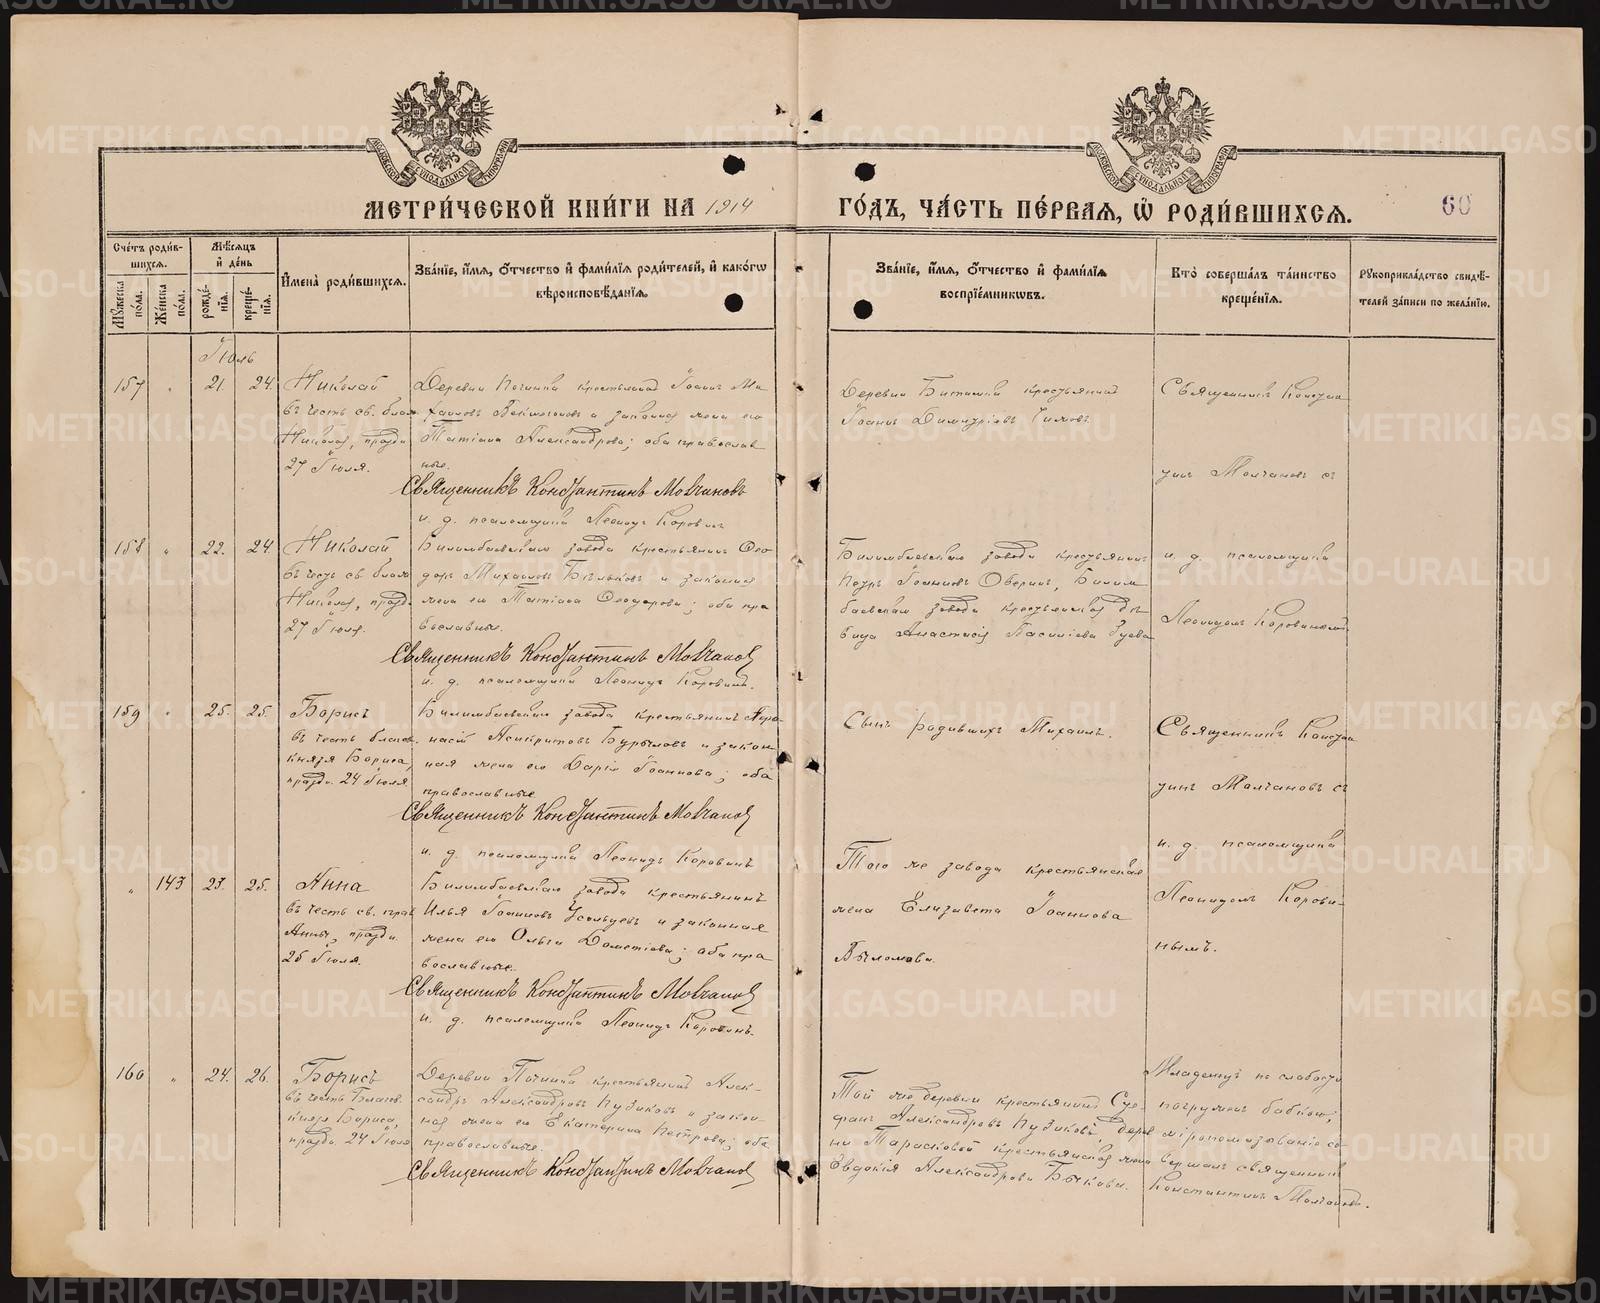 МЕТРИ́ЧЕСКОЙ КНИ́ГИ НА 1914 ГО́ДЪ, ЧА́СТЬ ПЕ́РВАѦ, Ѽ РОДИ́ВШИХСѦ.
60
Сче́тъ роди́в-
шихсѧ.
Мꙋ́жеска по́ла.
Же́нска по́ла.
Мѣ́сѧцъ и҆ де́нь
рожде́-
нїѧ.
креще́-
нїѧ.
И҆мена̀ роди́вшихсѧ.
Зва́нїе, и҆́мѧ, ѻ҆́тчество и҆ фами́лїѧ роди́телей, и҆ како́гѡ
вѣроисповѣ́данїѧ.
Зва́нїе, и҆́мѧ, ѻ҆́тчество и҆ фами́лїѧ
воспрїе́мникѡвъ.
Кто̀ соверша́лъ та́инство
креще́нїѧ.
Рꙋкоприкла́дство свидѣ́-
телей за́писи по жела́нїю.
Іюль
157 " 21. 24.
Николай
въ честь св. благ.
Николая, празд.
27 Іюля.
Деревни Починка крестьянинъ Іоаннъ Ми-
хаиловъ и законная жена его
Татіана Александрова; оба православ
ные.
Священникъ Константинъ Молчановъ
и. д. псаломщика Леонидъ Коровинъ
Деревни Битимки крестьянинъ
Іоаннъ Димитріевъ
Священникъ Констан
тинъ Молчановъ съ
158 " 22. 24.
Николай
въ честь св. благ.
Николая, празд.
27 Іюля.
Билимбаевскаго завода крестьянинъ Ѳео
доръ Михаиловъ и законная
жена его Татіана Ѳеодорова; оба пра
вославные.
Священникъ Константинъ Молчановъ
и. д. псаломщика Леонидъ Коровинъ.
Билимбаевскаго завода крестьянинъ
Петръ Іоанновъ Оверинъ, Билим
баевскаго завода крестьянская дѣ
вица Анастасія Василіева Зуева
и. д. псаломщика
Леонидомъ Коровинымъ
159 " 25. 25.
Борисъ
въ честь благов.
князя Бориса,
празд. 24 Іюля
Билимбаевскаго завода крестьянинъ
Асинкритовъ Бурыловъ и закон
ная жена его Дарія Іоаннова; оба
православные
Священникъ Константинъ Молчановъ
и. д. псаломщика Леонидъ Коровинъ
Сынъ родившихъ Михаилъ.
Священникъ Констан
тинъ Молчановъ съ
и. д. псаломщика
Леонидомъ Корови-
нымъ.
" 143 23. 25.
Анна
въ честь св. прав.
Анны, празд.
25 Іюля.
Билимбаевскаго завода крестьянинъ
Илья Іоанновъ Усольцевъ и законная
жена его Ольга Дометіева; оба пра
вославные.
Священникъ Константинъ Молчановъ
и. д. псаломщика Леонидъ Коровинъ.
Того же завода крестьянская
жена Елизавета Іоаннова
160 " 24. 26.
Борисъ
въ честь Благов.
князя Бориса,
празд. 24 Іюля
Деревни Починка крестьянинъ Алек-
сандръ Александровъ Пузиковъ и закон-
ная жена его Екатерина Петрова; оба
православные.
Священникъ Константинъ Молчановъ
Той же деревни крестьянинъ Сте-
фанъ Александровъ Пузиковъ, дерев
ни Тарасковой крестьянская жена
Евдокія Александрова Бычкова.
Младенецъ по слабости
погруженъ бабкою,
миропомазованіе со-
вершалъ священникъ
Константинъ Молчановъ.